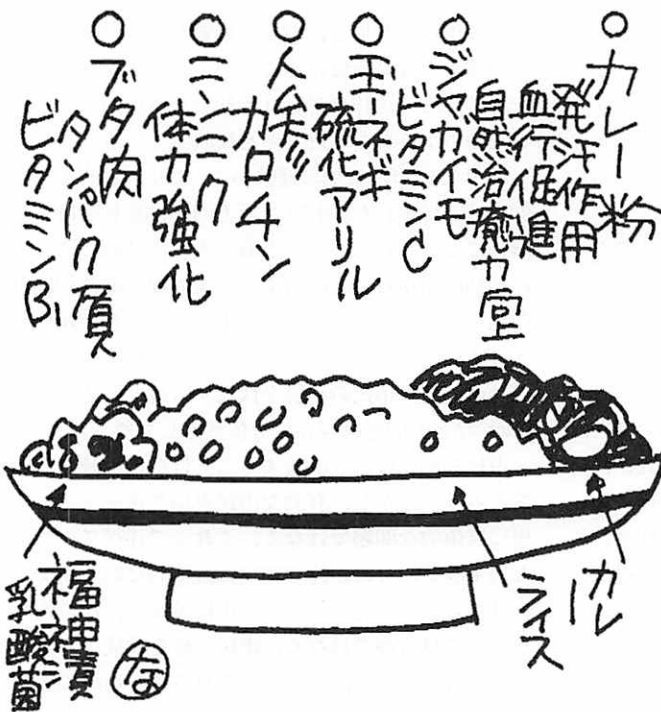 ○カレー粉
発汗作用
血行促進
自然治癒力向上
○ジャガイモ
ビタミンC
○玉ーネギ
硫化アリル
○人参
カロチン
○ニンニク
体力強化
○ブタ肉
タンパク質
ビタミンB₁
カレー
ライス
福神漬
乳酸菌
な